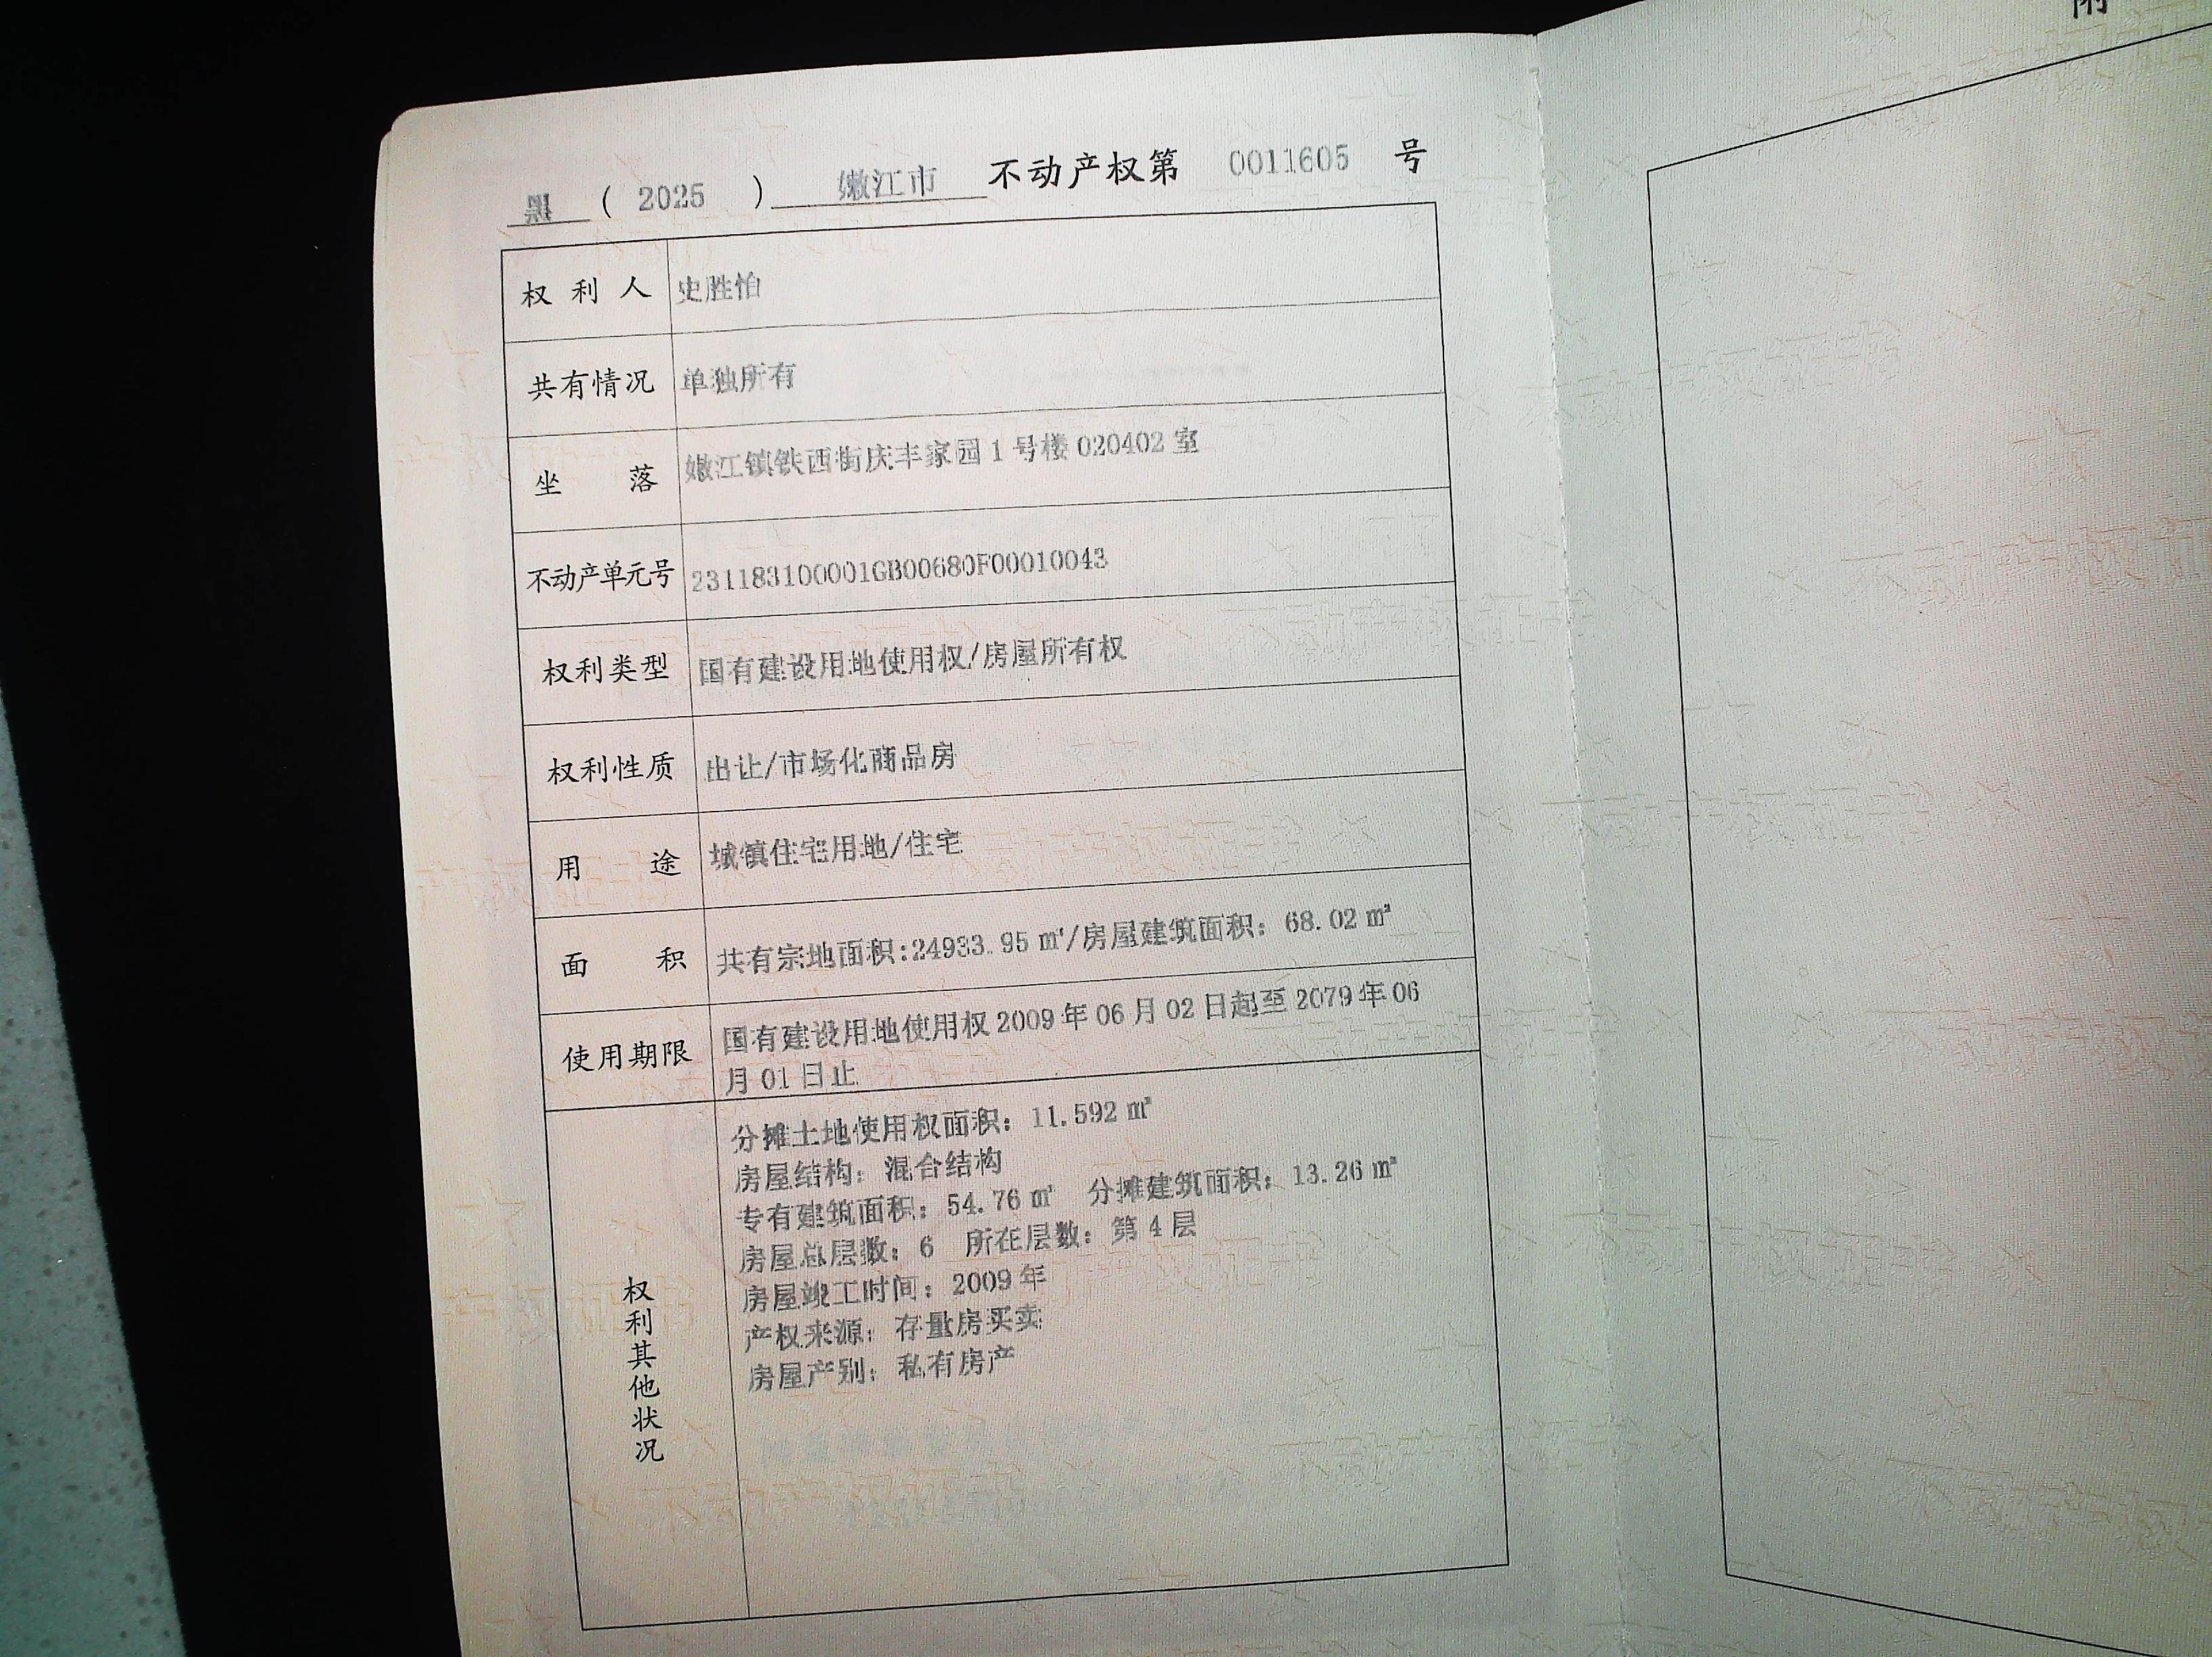 附
黑 ( 2025 ) 嫩江市 不动产权第 0011605 号
权利人 史胜怡
共有情况 单独所有
坐落 嫩江镇铁西街庆丰家园1号楼020402室
不动产单元号 231183100001GB00680F00010043
权利类型 国有建设用地使用权/房屋所有权
权利性质 出让/市场化商品房
用途 城镇住宅用地/住宅
面积 共有宗地面积:24933.95㎡/房屋建筑面积：68.02㎡
使用期限 国有建设用地使用权2009年06月02日起至2079年06
月01日止
权利其他状况
分摊土地使用权面积：11.592㎡
房屋结构：混合结构
专有建筑面积：54.76㎡ 分摊建筑面积：13.26㎡
房屋总层数：6 所在层数：第4层
房屋竣工时间：2009年
产权来源：存量房买卖
房屋产别：私有房产